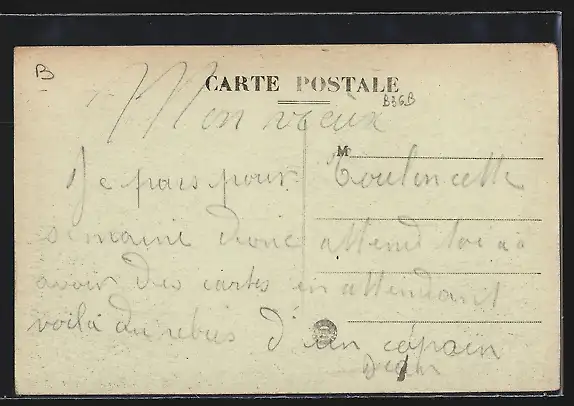 B
CARTE POSTALE
B36B
Mon vieux
M
Je pars pour Toulon cette
semaine donc attend toi à
avoir des cartes en attendant
voila du rebus d'un copain